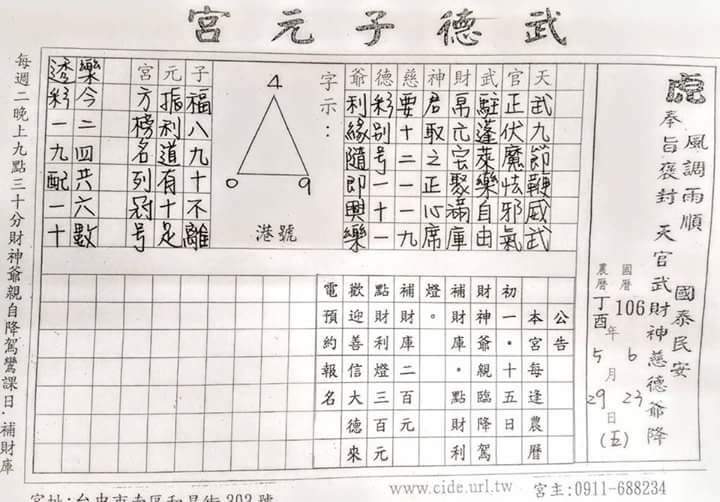 武德子元宮
虎
風調雨順 國泰民安
奉旨褒封 天官武財神慈德爺降
國曆 106 年 6 月 23 日 (五)
農曆 丁酉 5 29
天武九節鞭威武
官正伏魔怯邪氣
武駐蓬萊樂自由
財帛亢宅聚滿庫
神君取之正心席
慈要十二一一九
德彩別号一十一
爺利緣隨即興樂
字示:
4
0 9
港號
子福八九十不離
元指利道有十足
宮方榜名列冠号
樂今二四共六數
透彩一九配一十
公告
本宮每逢農曆
初一、十五日
財神爺親臨降駕
補財庫、點財利
燈。
補財庫二百元
點財利燈三百元
歡迎善信大德來
電預約報名
每週二晚上九點三十分財神爺親自降駕鸞課日.補財庫
www.cide.url.tw 宮主:0911-688234
宮址:台中市南區